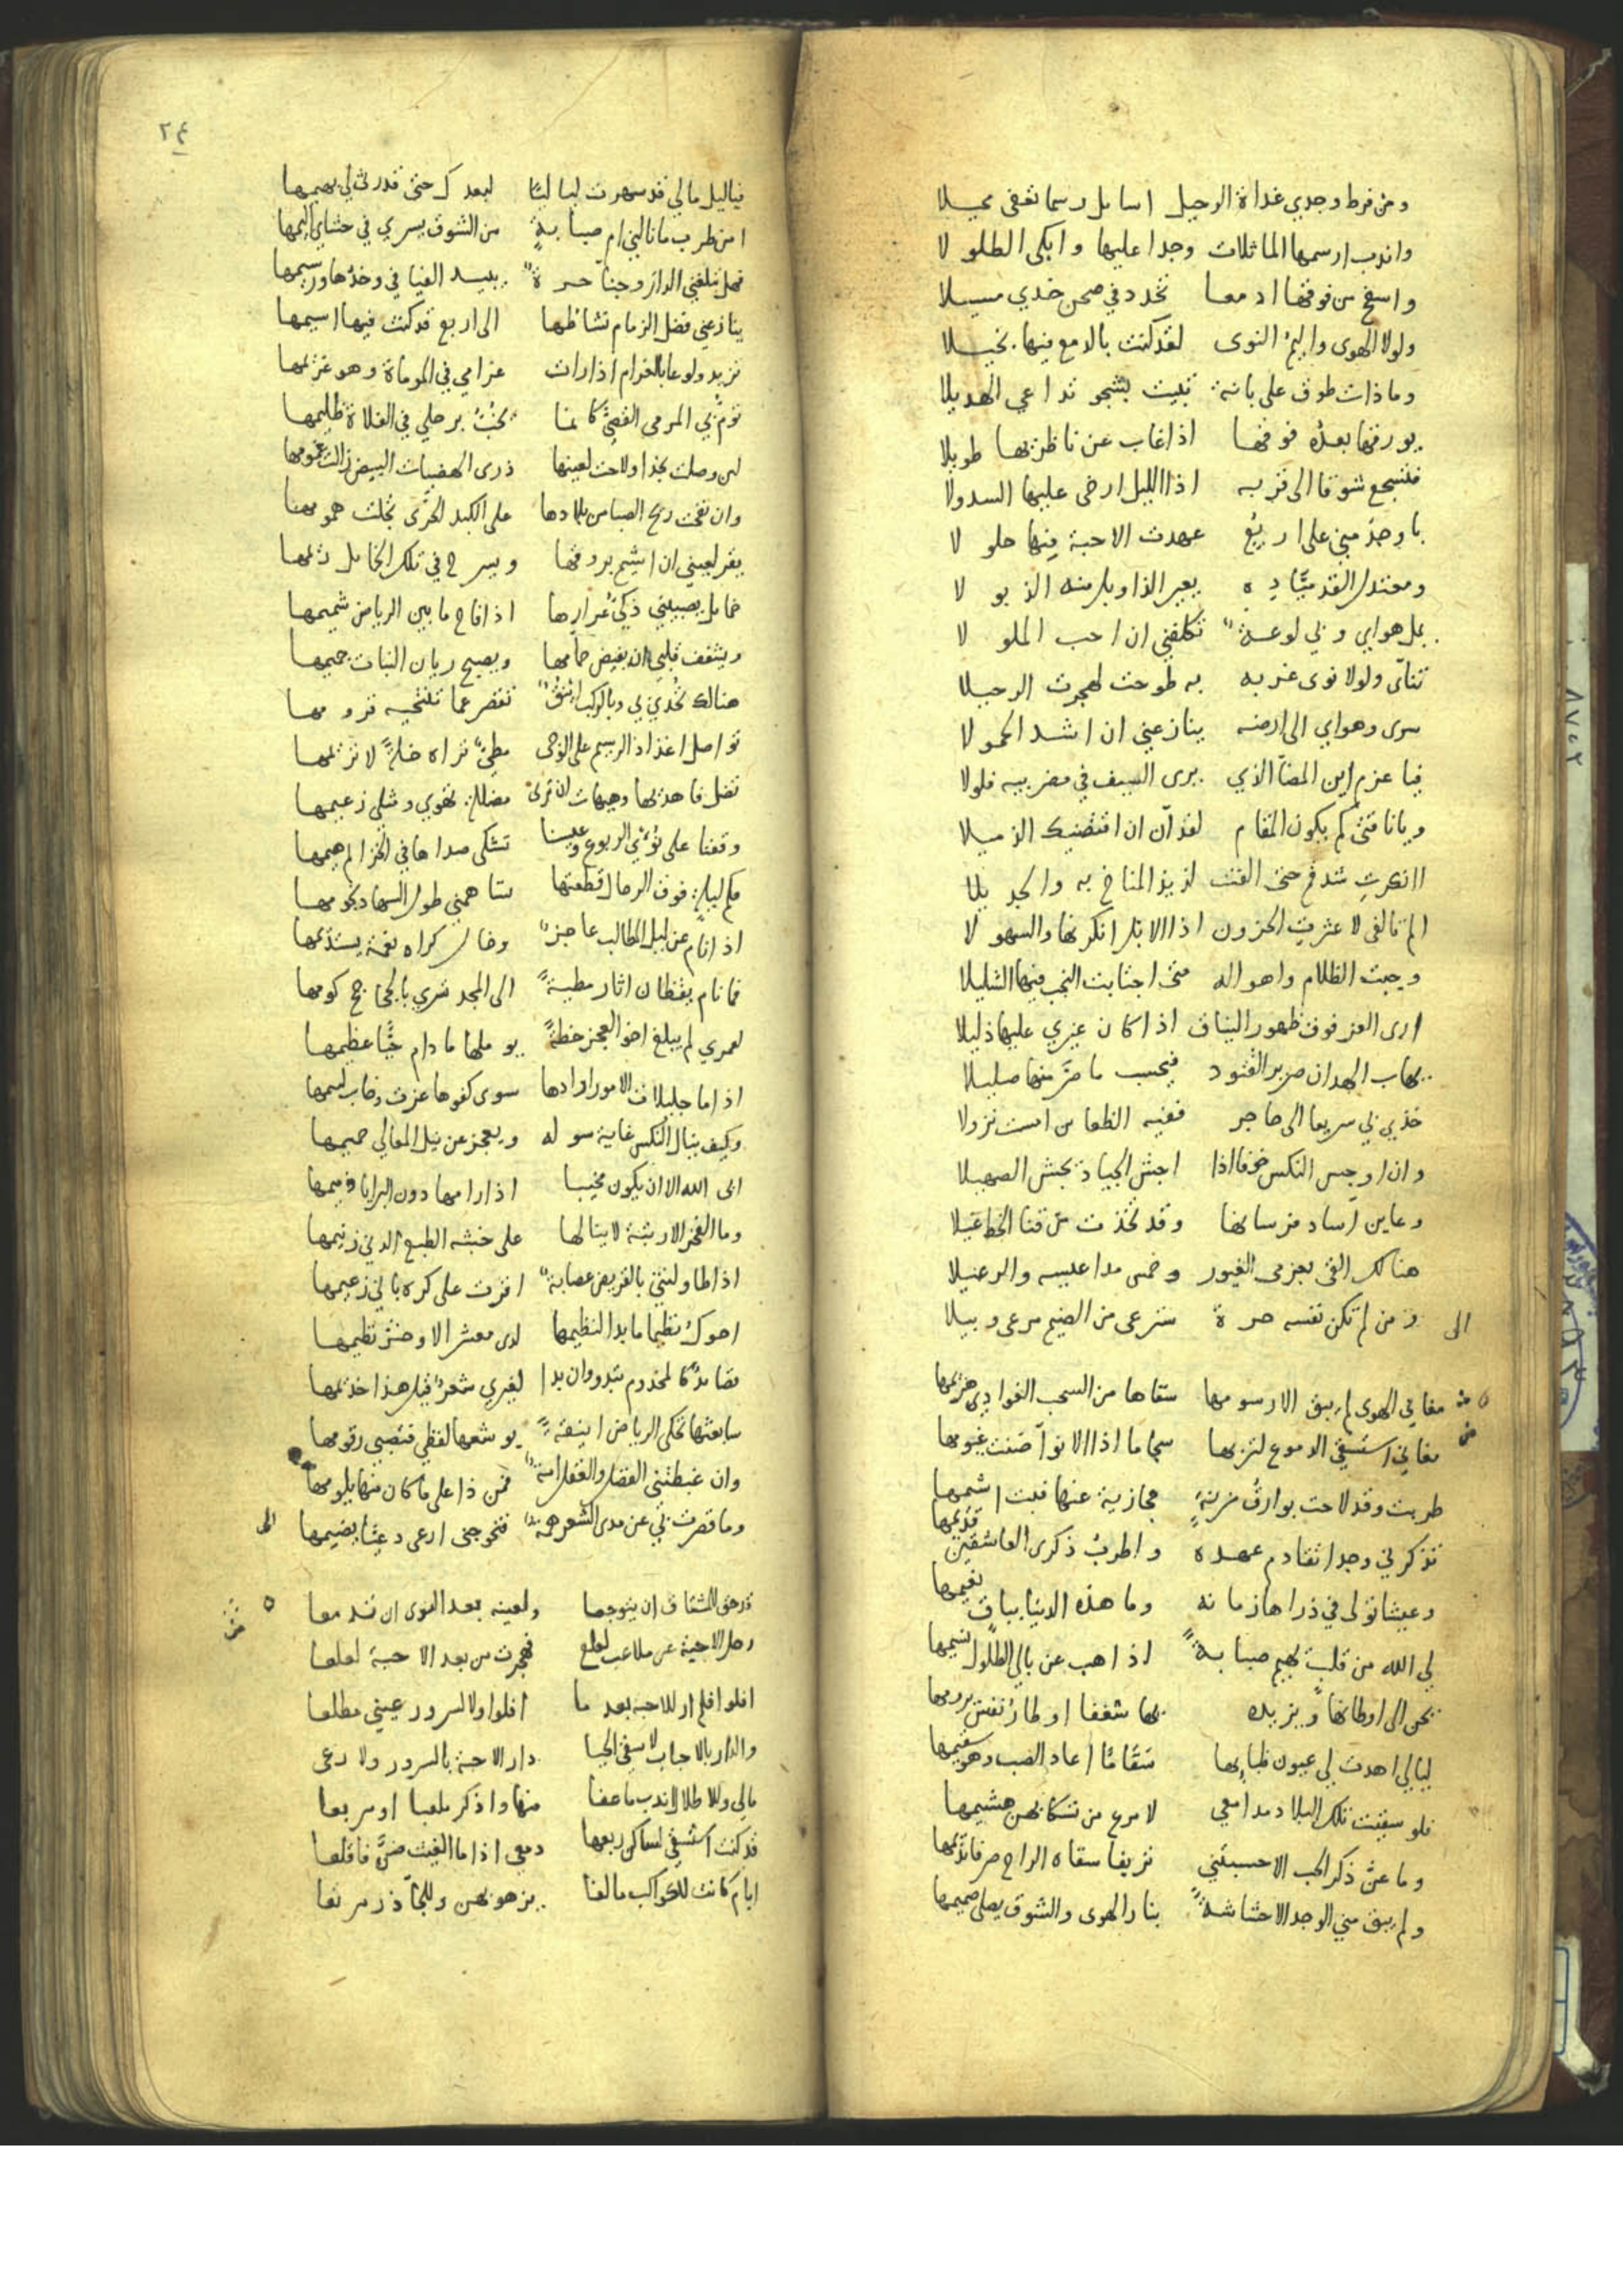 ومن فرط وجدي غداة الرحيل اسايل رسما تعفى محيلا
واندب ارسمها الماثلات وجدا عليها وابكى الطلولا
واسفح من فوقها ادمعا تخدد في صحن خدي مسيلا
ولولا الهوى واليم النوى لقد كنت بالدمع فيها بخيلا
وما ذات طوق على بانة تبيت بشجو تداعي الهديلا
يورقها بعده فوقها اذا غاب عن ناظريها طويلا
فتسجع شوقا الى قربه اذا الليل ارخى عليها السدولا
باوجد مني على اربع عهدت الاحبة فيها حلولا
ومعتدل القد مياده يعير الذوابل منه الذبولا
يمل هواي ولي لوعة تكلفني ان احب الملولا
تناآى ولولا نوى غربه به طوحت لهجرت الرحيلا
سرى وهواي الى ارضه ينازعني ان اشد الحمولا
فيا عزم اين المضاآ الذي يرى السيف في مضربيه فلولا
ويا ناقتي كم يكون المقام لقد آن ان اقتضيك الذميلا
اانكرت شدقم حتى الفت لذيذ المناخ به والجديلا
الم تالفي لا عثرت الحزون اذا الابل انكرنها والسهولا
وجبت الظلام واهواله متى اجتابت النجب فيها الشليلا
ارى العز فوق ظهور النياق اذا كان غيري عليها ذليلا
يهاب الهدان صرير القتود فيحسب ما صر منها صليلا
خذي بي سريعا الى حاجر ففيه الظعاين امست نزولا
وان اوجس النكس خوفا اذا اجش الجياد تجش الصهيلا
وعاين آساد فرسانها وقد تخذت من قنا الخط غيلا
هنالك القى بعزمى الغيور وخمس مداعيسه والرعيلا
ومن لم تكن نفسه حرة سترعى من الضيم مرعى وبيلا الى
مغاني الهوى لم يبق الا رسومها سقاها من السحب الغوادي هزيمها
مغاني استسقي الدموع لتربها سجاما اذا الانوآ ضنت غيومها
طربت وقد لاحت بوارق مزنة حجازية عنها فبت اشيمها
تذكرني وجدا تقادم عهده واطرب ذكرى العاشقين قديمها
وعيشا تولى في ذراها زمانه وما هذه الدنيا بباق نعيمها
لي الله من قلب يهيم صبابة اذا هب عن بالي الطلول نسيمها
يحن الى اوطانها ويزيده بها شغفا اوطار نفس يرومها
ليالي اهدت لي عيون ظبايها سقاما اعاد الصب وهو سقيمها
فلو سقيت تلك البلاد مدامعي لامرع من تسكابهن هشيمها
وما عن ذكر الحب الا حسبتني نزيفا سقاه الراح صرفا نديمها
ولم يبق مني الوجد الا حشاشة بنار الهوى والشوق يصلى صميمها
٢٤
فيا ليل مالي قد سهرت لياليا لبعدك حتى قد رثى لي بهيمها
امن طرب ما نالني ام صبابة من الشوق يسري في حشاي اليمها
فهل يبلغني الدار وجناآ حرة ببيد الفيافي وخدها ورسيمها
ينازعني فضل الزمام نشاطها الى اربع قد كنت فيها اسيمها
تزيد ولوعا بالغرام اذا رات غرامي في الموماة وهو غريمها
تؤم بي المرمى القصي كانما يخب برحلي في الفلاة ظليمها
لين وصلت نجدا ولاحت لعينها ذرى الهضبات البيض زالت غمومها
وان نفحت ريح الصبا من بلادها على الكبد الحرى تجلت همومها
يقر لعيني ان اشيم بروقها ويسرح في تلك الخمايل ريمها
خمايل يصبيني ذكي عرارها اذا فاح ما بين الرياض شميمها
ويشغف قلبي ان يفيض جمامها ويصبح ريان النبات جميمها
هنالك تخدي بي وبالركب اينق تقصر عما تنتحيه قرومها
تواصل اغذاذ الرسيم على الوجى مطي تراه خلة لا تريمها
تضل فاهديها وهيهات ان ترى مضللة تهوي ومثلي زعيمها
وقفنا على نؤي الربوع وعيسنا تشكى صداها في الخزايم هيمها
فكم ليلة فوق الرحال قطعتها تساهمني طول السهاد نجومها
اذا نام عن ليل المطالب عاجز وخال كراه نعمة يستديمها
فما نام يقظان اثار مطية الى المجد تسري بالحجاجح كومها
لعمري لم يبلغ اخو العجز خطة يوملها ما دام حيا عظيمها
اذا ما جليلات الامور ارادها سوى كفوها عزت وخاب لييمها
وكيف ينال النكس غاية سوله ويعجز عن نيل المعالي حميمها
ابى الله الا ان يكون مخيبا اذا رامها دون البرايا ذميمها
وما الفخر الا رتبة لا ينالها على خبثه الطبع الدني زنيمها
اذا طاولتني بالقريض عصابة اقرت على كره باني زعيمها
احوك نظيما ما بدا لنظيمها لدى معشر الا وخس نظيمها
قصايد كالمخذوم تبدو وان بدا لغيري شعر قيل هذا خذيمها
سابعثها تحكى الرياض انيقة يوشعها لفظي فتصبي رقومها
وان غبطتني الفضل والفضل امة فمن ذا على ما كان منها يلومها
وما قصرت بي عن مدى الشعر همة فتحوجني ارعى دعيا يضيمها الى
قد حق للمشتاق ان يتوجعا ولعينه بعد النوى ان تدمعا
رحل الاحبة عن ملاعب لعلع فهجرت من بعد الاحبة لعلعا
افلوا فلم ار للاحبة بعد ما افلوا ولا لسرور عيني مطلعا
والدار بالاحباب لا سقى الحيا دار الاحبة بالسرور ولا رعى
مالي وللاطلال اندب ما عفا منها واذكر ملعبا او مربعا
قد كنت استسقي لساكن ربعها دمعي اذا ما الغيث ضن فاقلعا
ايام كانت للكواكب مالفا يزهو بهن وللجآذر مرتعا